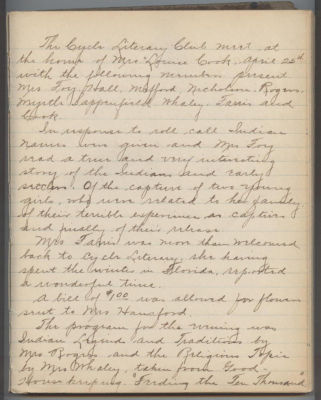 The Cycle Literary Club met at
the home of Mrs Louise Cook, April 25th
with the following members present
Mrs Foy, Hall, Nicholson, Rogers,
Myrtle Sapenfield, Whaley, Faris and
Cook.
In response to roll call Indian
Names were given and Mrs Foy
read a true and very interesting
story of the Indians and early
settlers. Of the capture of two young
girls, who were related to her family,
of their terrible experiences as captives
and finally of their release.
Mrs Faris was more than welcomed
back to Cycle Literary, she having
spent the winter in Florida, reported
a wonderful time.
A bill of $1.00 was allowed for flowers
sent to Mrs Hansford.
The program for the evening was
Indian Legends and Traditions by
Mrs Rogers and the Religious Topic
by Mrs Whaley, taken from Good-
Housekeeping. "Feeding the Ten Thousand"